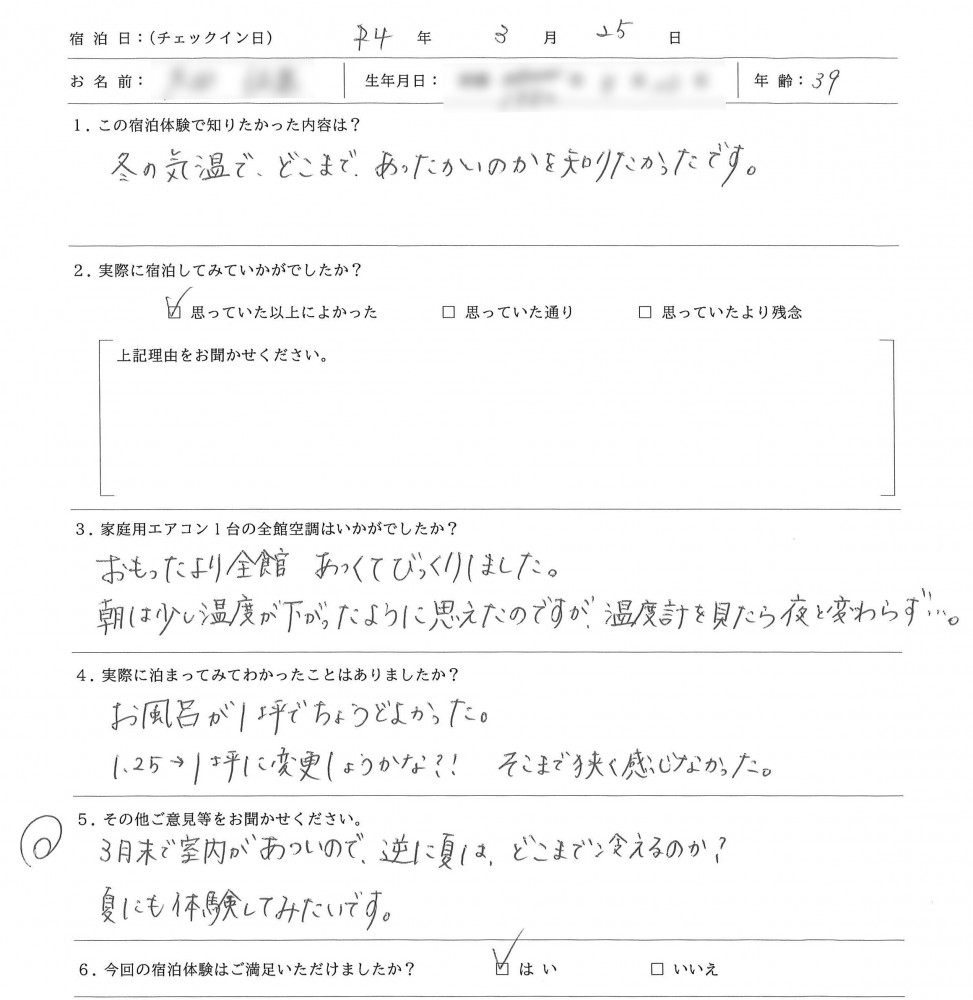 宿泊日：（チェックイン日） R4 年 3 月 25 日
お名前： 生年月日： 年齢：39
1．この宿泊体験で知りたかった内容は？
冬の気温で、どこまで、あったかいのかを知りたかったです。
2．実際に宿泊してみていかがでしたか？
☑ 思っていた以上によかった □ 思っていた通り □ 思っていたより残念
上記理由をお聞かせください。
3．家庭用エアコン1台の全館空調はいかがでしたか？
おもったより全館 あっくてびっくりしました。
朝は少し温度が下がったように思えたのですが、温度計を見たら夜と変わらず…。
4．実際に泊まってみてわかったことはありましたか？
お風呂が1坪でちょうどよかった。
1.25→1坪に変更しようかな?!! そこまで狭く感じなかった。
5．その他ご意見等をお聞かせください。
3月末で室内があついので、逆に夏は、どこまで冷えるのか？
夏にも体験してみたいです。
6．今回の宿泊体験はご満足いただけましたか？ ☑ はい □ いいえ